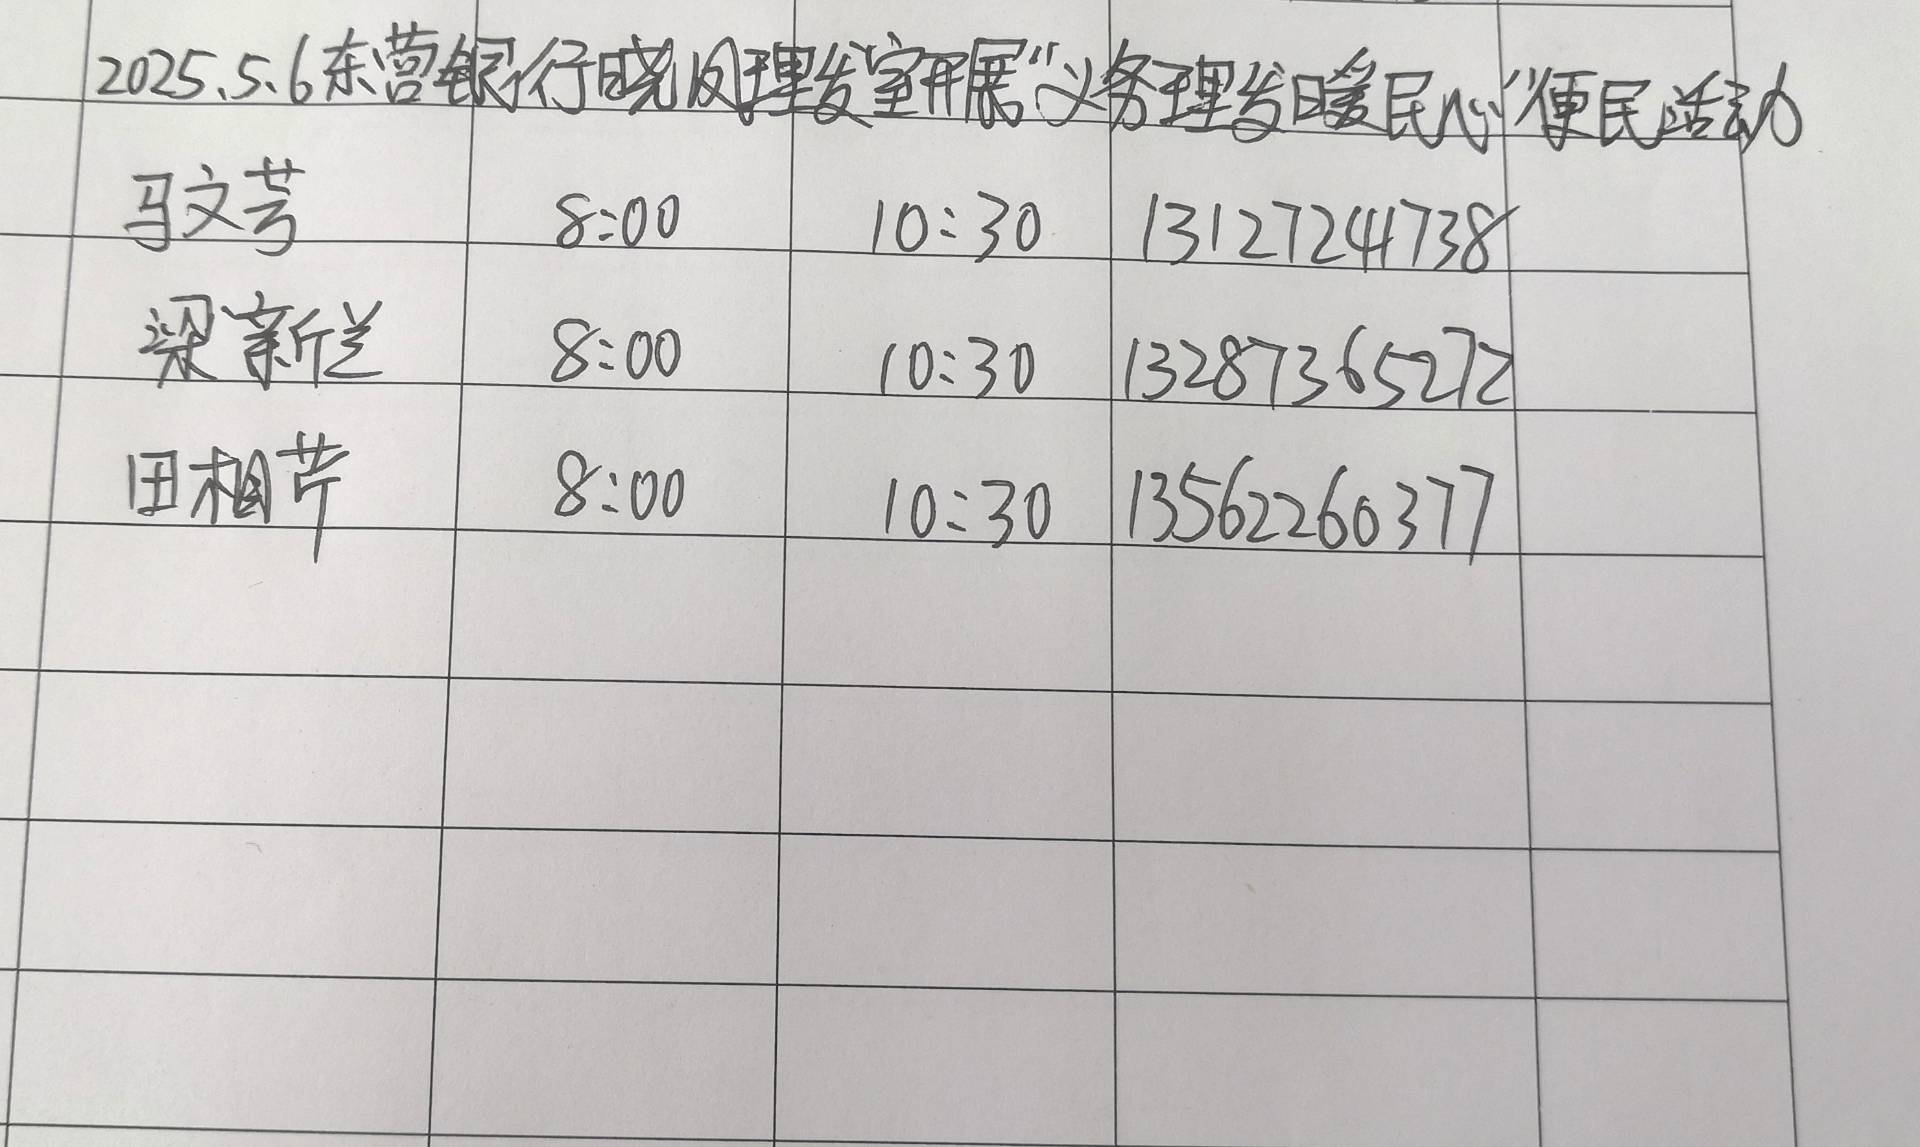 2025.5.6东营银行晓风理发室开展“义务理发暖民心”便民活动
马文芳 8:00 10:30 13127241738
梁新兰 8:00 10:30 13287365272
田相芹 8:00 10:30 13562260377